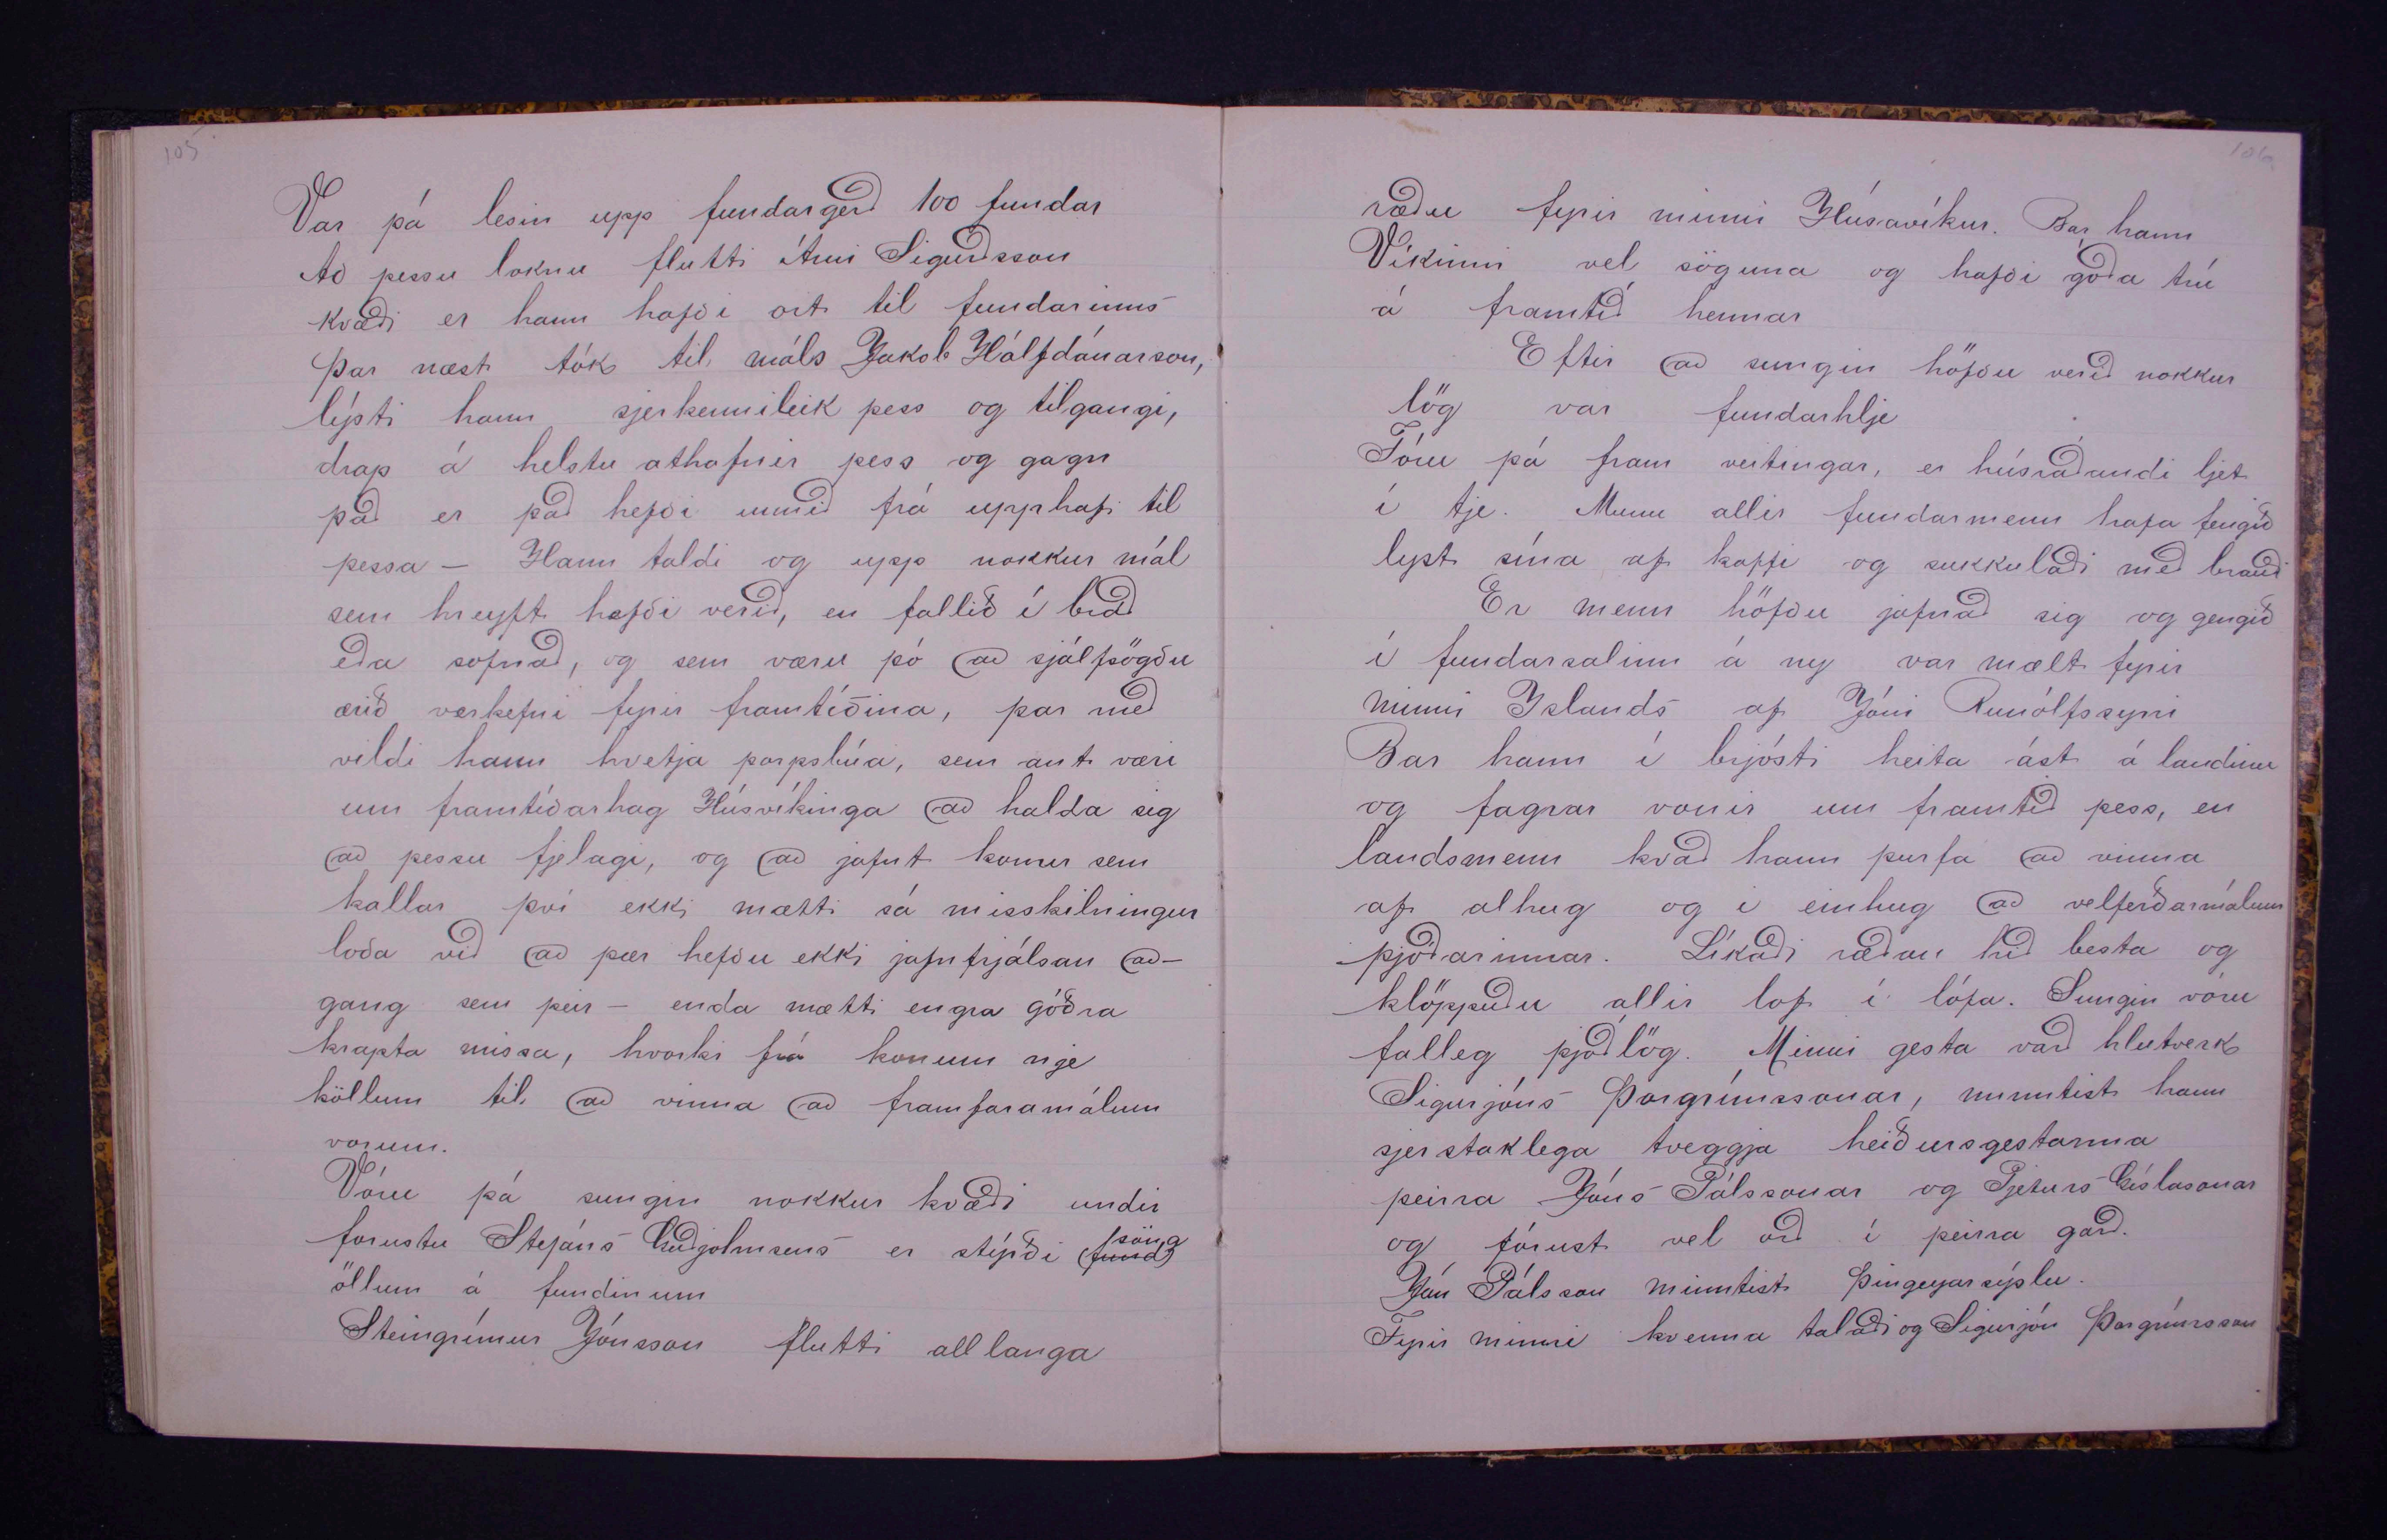 105
Var þá lesin upp fundargerð 100 fundar
Að þessu loknu flutti Árni Sigurðsson
kvæði er hann hafði ort til fundarinns
Þar næst tók til máls Jakob Hálfdánarson,
lýsti hann sjerkennileik þess og tilgangi,
drap á helstu athafnir þess og gagn
það er það hefði unnið frá upphafi til
þessa – Hann taldi og upp nokkur mál
sem hreyft hafði verið, en fallið í bráð
eða sofnað, og sem væru þó að sjálfsögðu
ærið verkefni fyrir framtíðina, þar með
vildi hann hvetja þorpsbúa, sem ant væri
um framtíðarhag Húsvíkinga að halda sig
að þessu fjelagi, og að jafnt konur sem
kallar því ekki mætti sá misskilningur
loða við að þær hefðu ekki jafnfrjálsan að-
gang sem þeir – enda mætti engra góðra
krapta missa, hvorki frá konum nje
köllum til að vinna að framfaramálum
vorum.
Vóru þá sungin nokkur kvæði undir
forustu Stefáns Guðjohnsens er stýrði fund söng
öllum á fundinum
Steingrímur Jónsson flutti all langa
106
ræðu fyrir minni Húsavíkur. Bar hann
Víkinni vel söguna og hafði góða trú
á framtíð hennar
Eftir að sungin höfðu verið nokkur
lög var fundarhlje
Fóru þá fram veitingar, er húsráðandi ljet
í tje. Munu allir fundarmenn hafa fengið
lyst sína af kaffi og sukkulaði með brauði
Er menn höfðu jafnað sig og gengið
í fundarsalinn á ny var mælt fyrir
minni Islands af Jóni Runólfssyni
Bar hann í brjósti heita ást á landinu
og fagrar vonir um framtíð þess, en
landsmenn kvað hann þurfa að vinna
af alhug og í einhug að velferðarmálum
þjóðarinnar. Líkaði ræðan hið besta og
klöppuðu allir lof í lófa. Sungin vóru
falleg þjóðlög. Minni gesta varð hlutverk
Sigurjóns Þorgrímssonar, minntist hann
sjerstaklega tveggja heiðursgestanna
þeirra Jóns Pálssonar og Pjeturs Gíslasonar
og fórust vel orð í þeirra garð.
Jón Pálsson minntist Þingeyarsýslu.
Fyrir minni kvenna talaði og Sigurjón Þorgrímsson